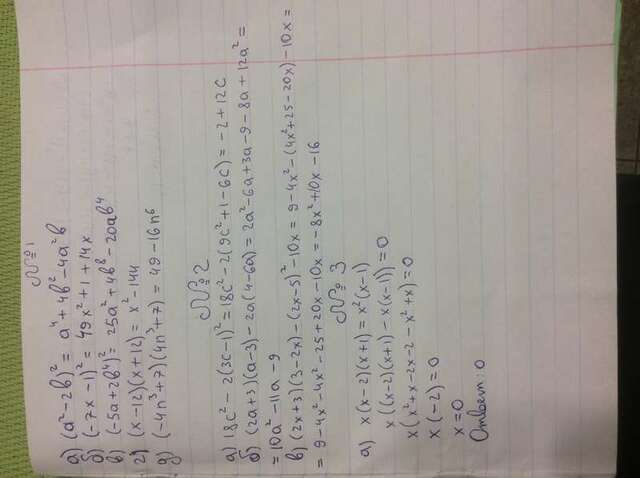 №1
а) (a² - 2b)² = a⁴ + 4b² - 4a²b
б) (-7x - 1)² = 49x² + 1 + 14x
в) (-5a + 2b⁴)² = 25a² + 4b⁸ - 20ab⁴
г) (x - 12)(x + 12) = x² - 144
д) (-4n³ + 7)(4n³ + 7) = 49 - 16n⁶
№2
а) 18c² - 2(3c - 1)² = 18c² - 2(9c² + 1 - 6c) = -2 + 12c
б) (2a + 3)(a - 3) - 2a(4 - 6a) = 2a² - 6a + 3a - 9 - 8a + 12a² =
= 10a² - 11a - 9
в) (2x + 3)(3 - 2x) - (2x - 5)² - 10x = 9 - 4x² - (4x² + 25 - 20x) - 10x =
= 9 - 4x² - 4x² - 25 + 20x - 10x = -8x² + 10x - 16
№3
а) x(x - 2)(x + 1) = x²(x - 1)
x((x - 2)(x + 1) - x(x - 1)) = 0
x(x² + x - 2x - 2 - x² + x) = 0
x(-2) = 0
x = 0
Ответ: 0